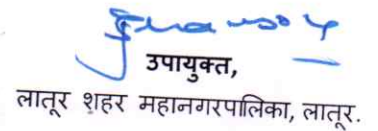 उपायुक्त,
लातूर शहर महानगरपालिका, लातूर.